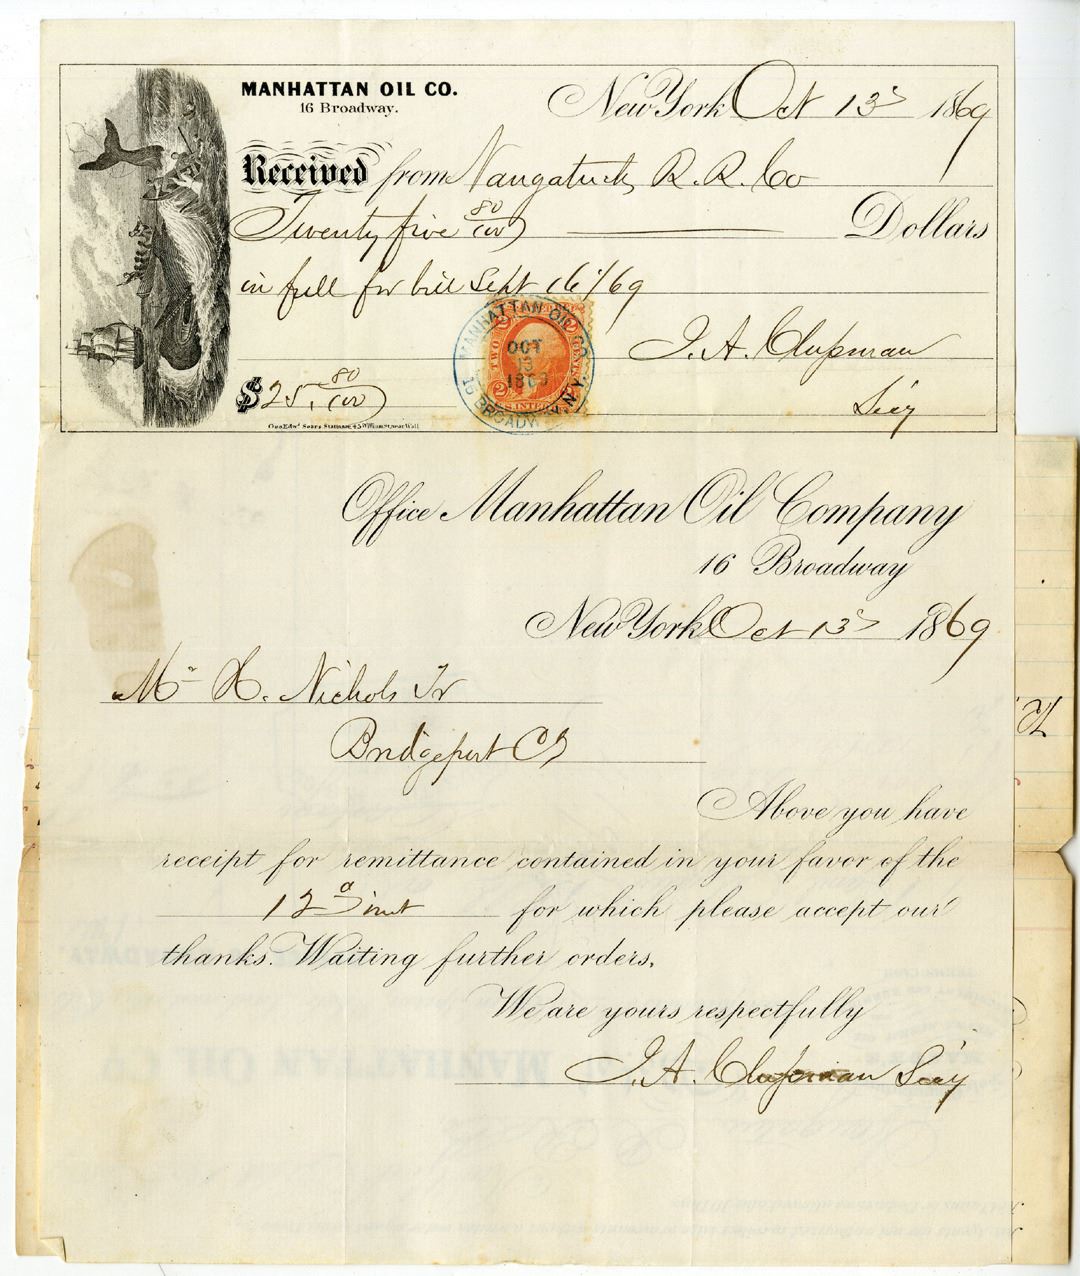 MANHATTAN OIL CO.
16 Broadway.
New York Oct 13 1869
Received from Naugatuck R. R. Co
Twenty five 80/100 Dollars
in full for bill Sept 16/69
J. A. Chapman
Secy
$25. 80/100
Geo. Edwd Sears Stationer, 45 William St. near Wall
MANHATTAN OIL CO.
OCT
13
1869
16 BROADWAY, N.Y.
TWO CENTS
Office Manhattan Oil Company
16 Broadway
New York Oct 13 1869
Mr H. Nichols Tr
Bridgeport Ct
Above you have
receipt for remittance contained in your favor of the
12 inst for which please accept our
thanks. Waiting further orders,
We are yours respectfully
J. A. Chapman Secy
MANHATTAN OIL CO